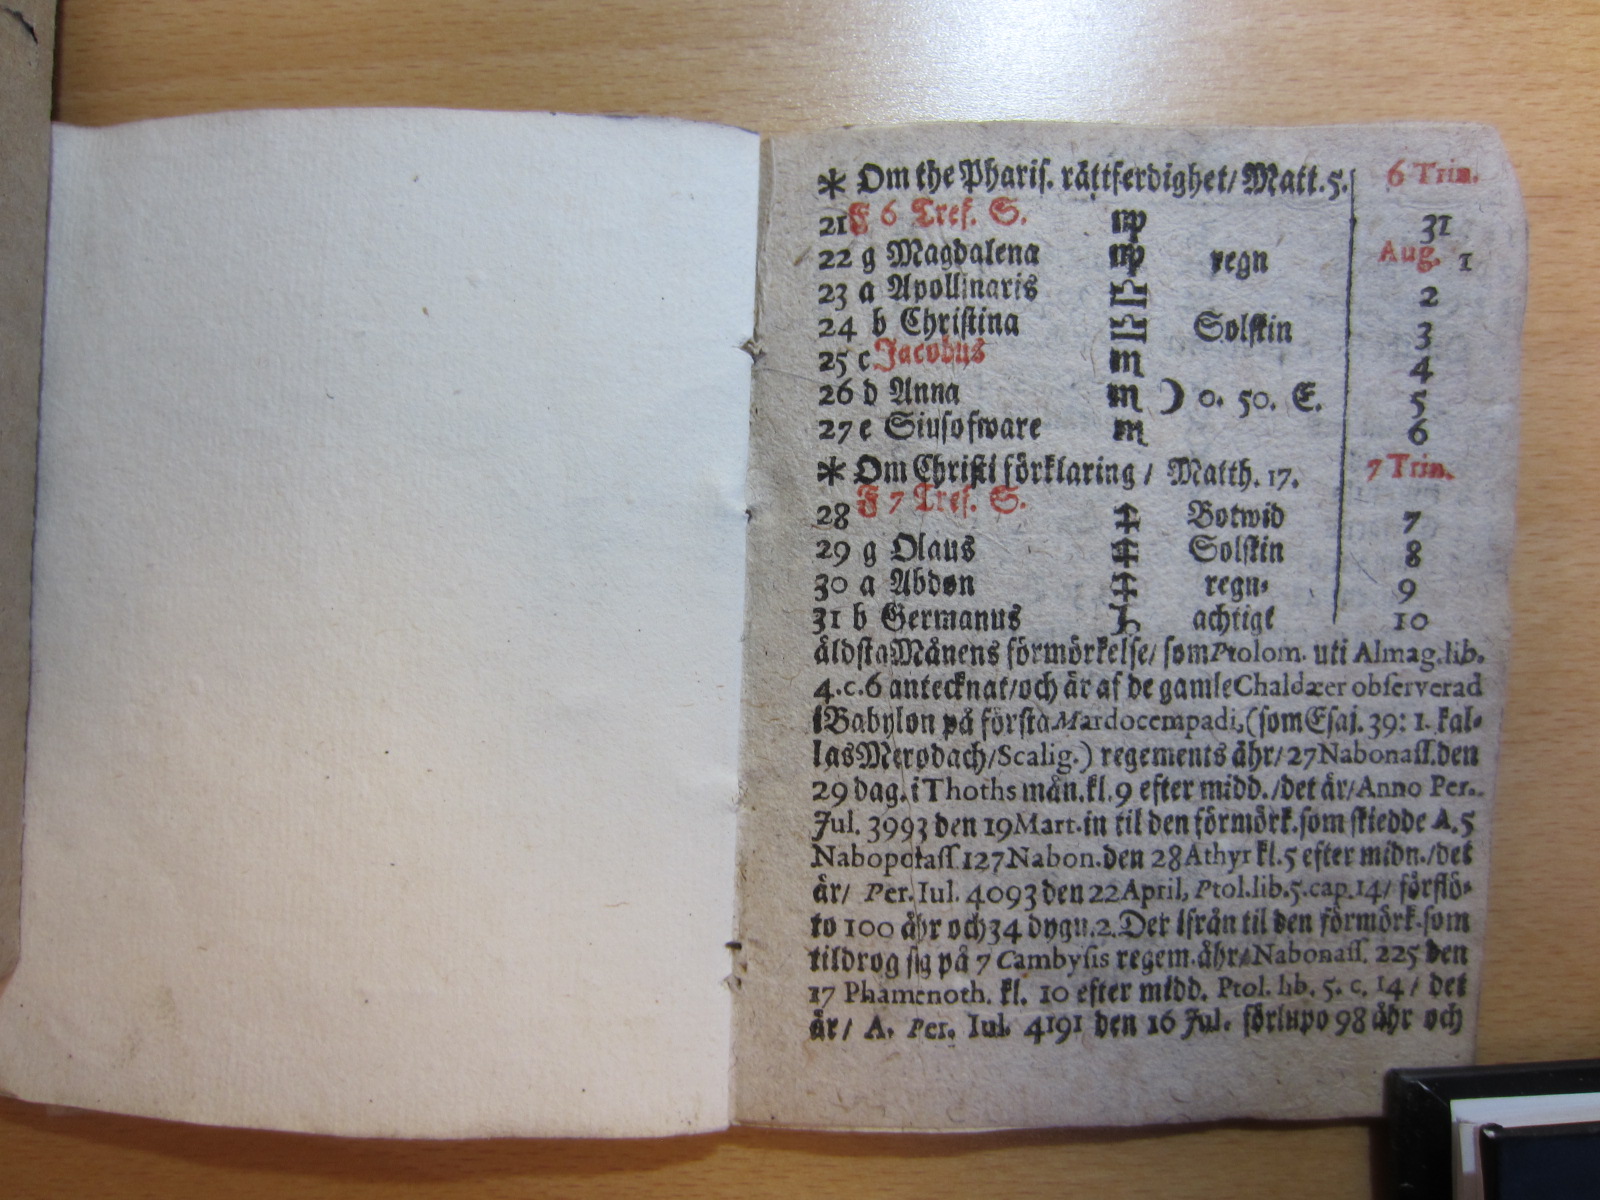 * Om the Pharis. rättferdighet/ Matt. 5. 6 Trin.
21 F 6 Tref. S. ♍ 31
22 g Magdalena ♍ regn Aug. 1
23 a Apollinaris ♎ 2
24 b Christina ♎ Solskin 3
25 c Jacobus ♏ 4
26 d Anna ♏ ☽ 0. 50. E. 5
27 e Siusofware ♏ 6
* Om Christi förklaring / Matth. 17. 7 Trin.
28 F 7 Tref. S. ♐ Botwid 7
29 g Olaus ♐ Solskin 8
30 a Abdon ♐ regn- 9
31 b Germanus ♑ achtigt 10
äldsta Månens förmörkelse/ som Ptolom. uti Almag. lib.
4. c. 6 antecknat/ och är af de gamle Chaldæer observerad
i Babylon på första Mardocempadi, (som Esaj. 39: 1. kal-
las Merodach/ Scalig.) regements åhr/ 27 Nabonass. den
29 dag. i Thoths mån. kl. 9 efter midd. /det är/ Anno Per.
Jul. 3993 den 19 Mart. in til den förmörk. som skiedde A. 5
Nabopolass. 127 Nabon. den 28 Athyr kl. 5 efter midn. /det
är/ Per. Iul. 4093 den 22 April, Ptol. lib. 5. cap. 14/ förflö-
to 100 åhr och 34 dygn. 2. Der ifrån til den förmörk. som
tildrog sig på 7 Cambysis regem. åhr/ Nabonass. 225 den
17 Phamenoth. kl. 10 efter midd. Ptol. lib. 5. c. 14 / det
är/ A. Per. Iul. 4191 den 16 Jul. förlupo 98 åhr och